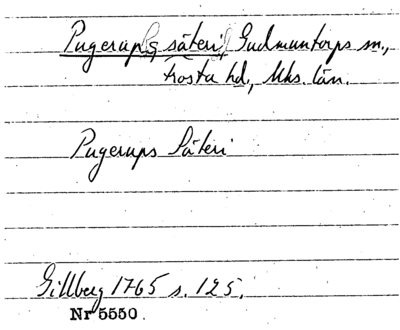 Pugerups säteri, Gudmuntorps sn.,
Frosta hd., Mhs. län.
Pugerups Säteri
Gillberg 1765 s. 125.
Nr 5550.